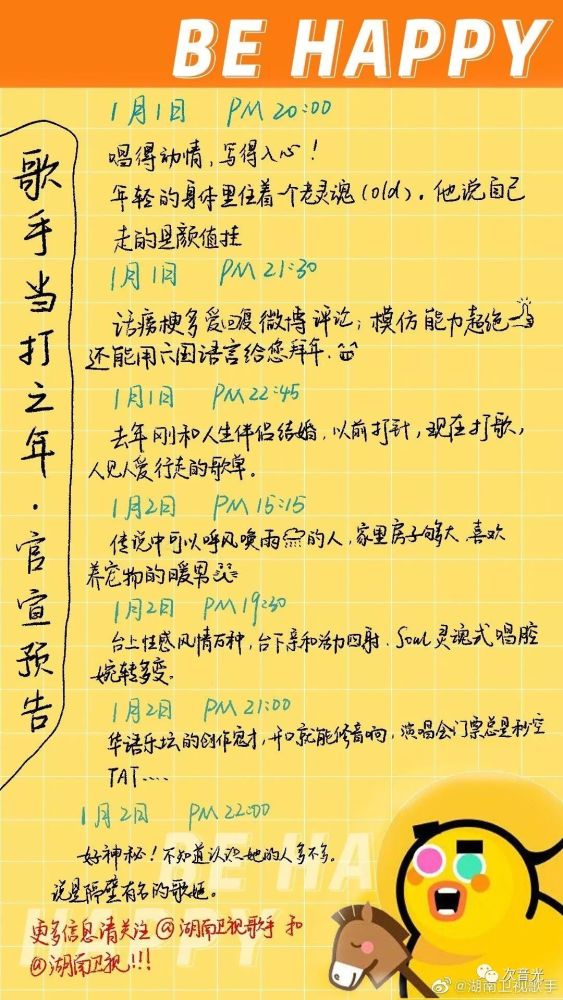 BE HAPPY
歌手当打之年·官宣预告
1月1日 PM 20:00
唱得动情,写得入心!
年轻的身体里住着一个老灵魂(old).他说自己
走的是颜值挂
1月1日 PM 21:30
话痨梗多爱回复微博评论;模仿能力超绝
还能用六国语言给您拜年.
1月1日 PM 22:45
去年刚和人生伴侣结婚,以前打针,现在打歌,
人见人爱行走的歌单。
1月2日 PM 15:15
传说中可以呼风唤雨的人,家里房子够大 喜欢
养宠物的暖男
1月2日 PM 19:30
台上性感风情万种,台下亲和活力四射. Soul灵魂式唱腔
婉转多变。
1月2日 PM 21:00
华语乐坛的创作鬼才,开口就能修音响,演唱会门票总是秒空
TAT....
1月2日 PM 22:00
好神秘!不知道认识她的人多不多.
说是隔壁有名的歌姬。
更多信息请关注@湖南卫视歌手 和
@湖南卫视!!!
BE HA
HAPPY
次音光
@湖南卫视歌手